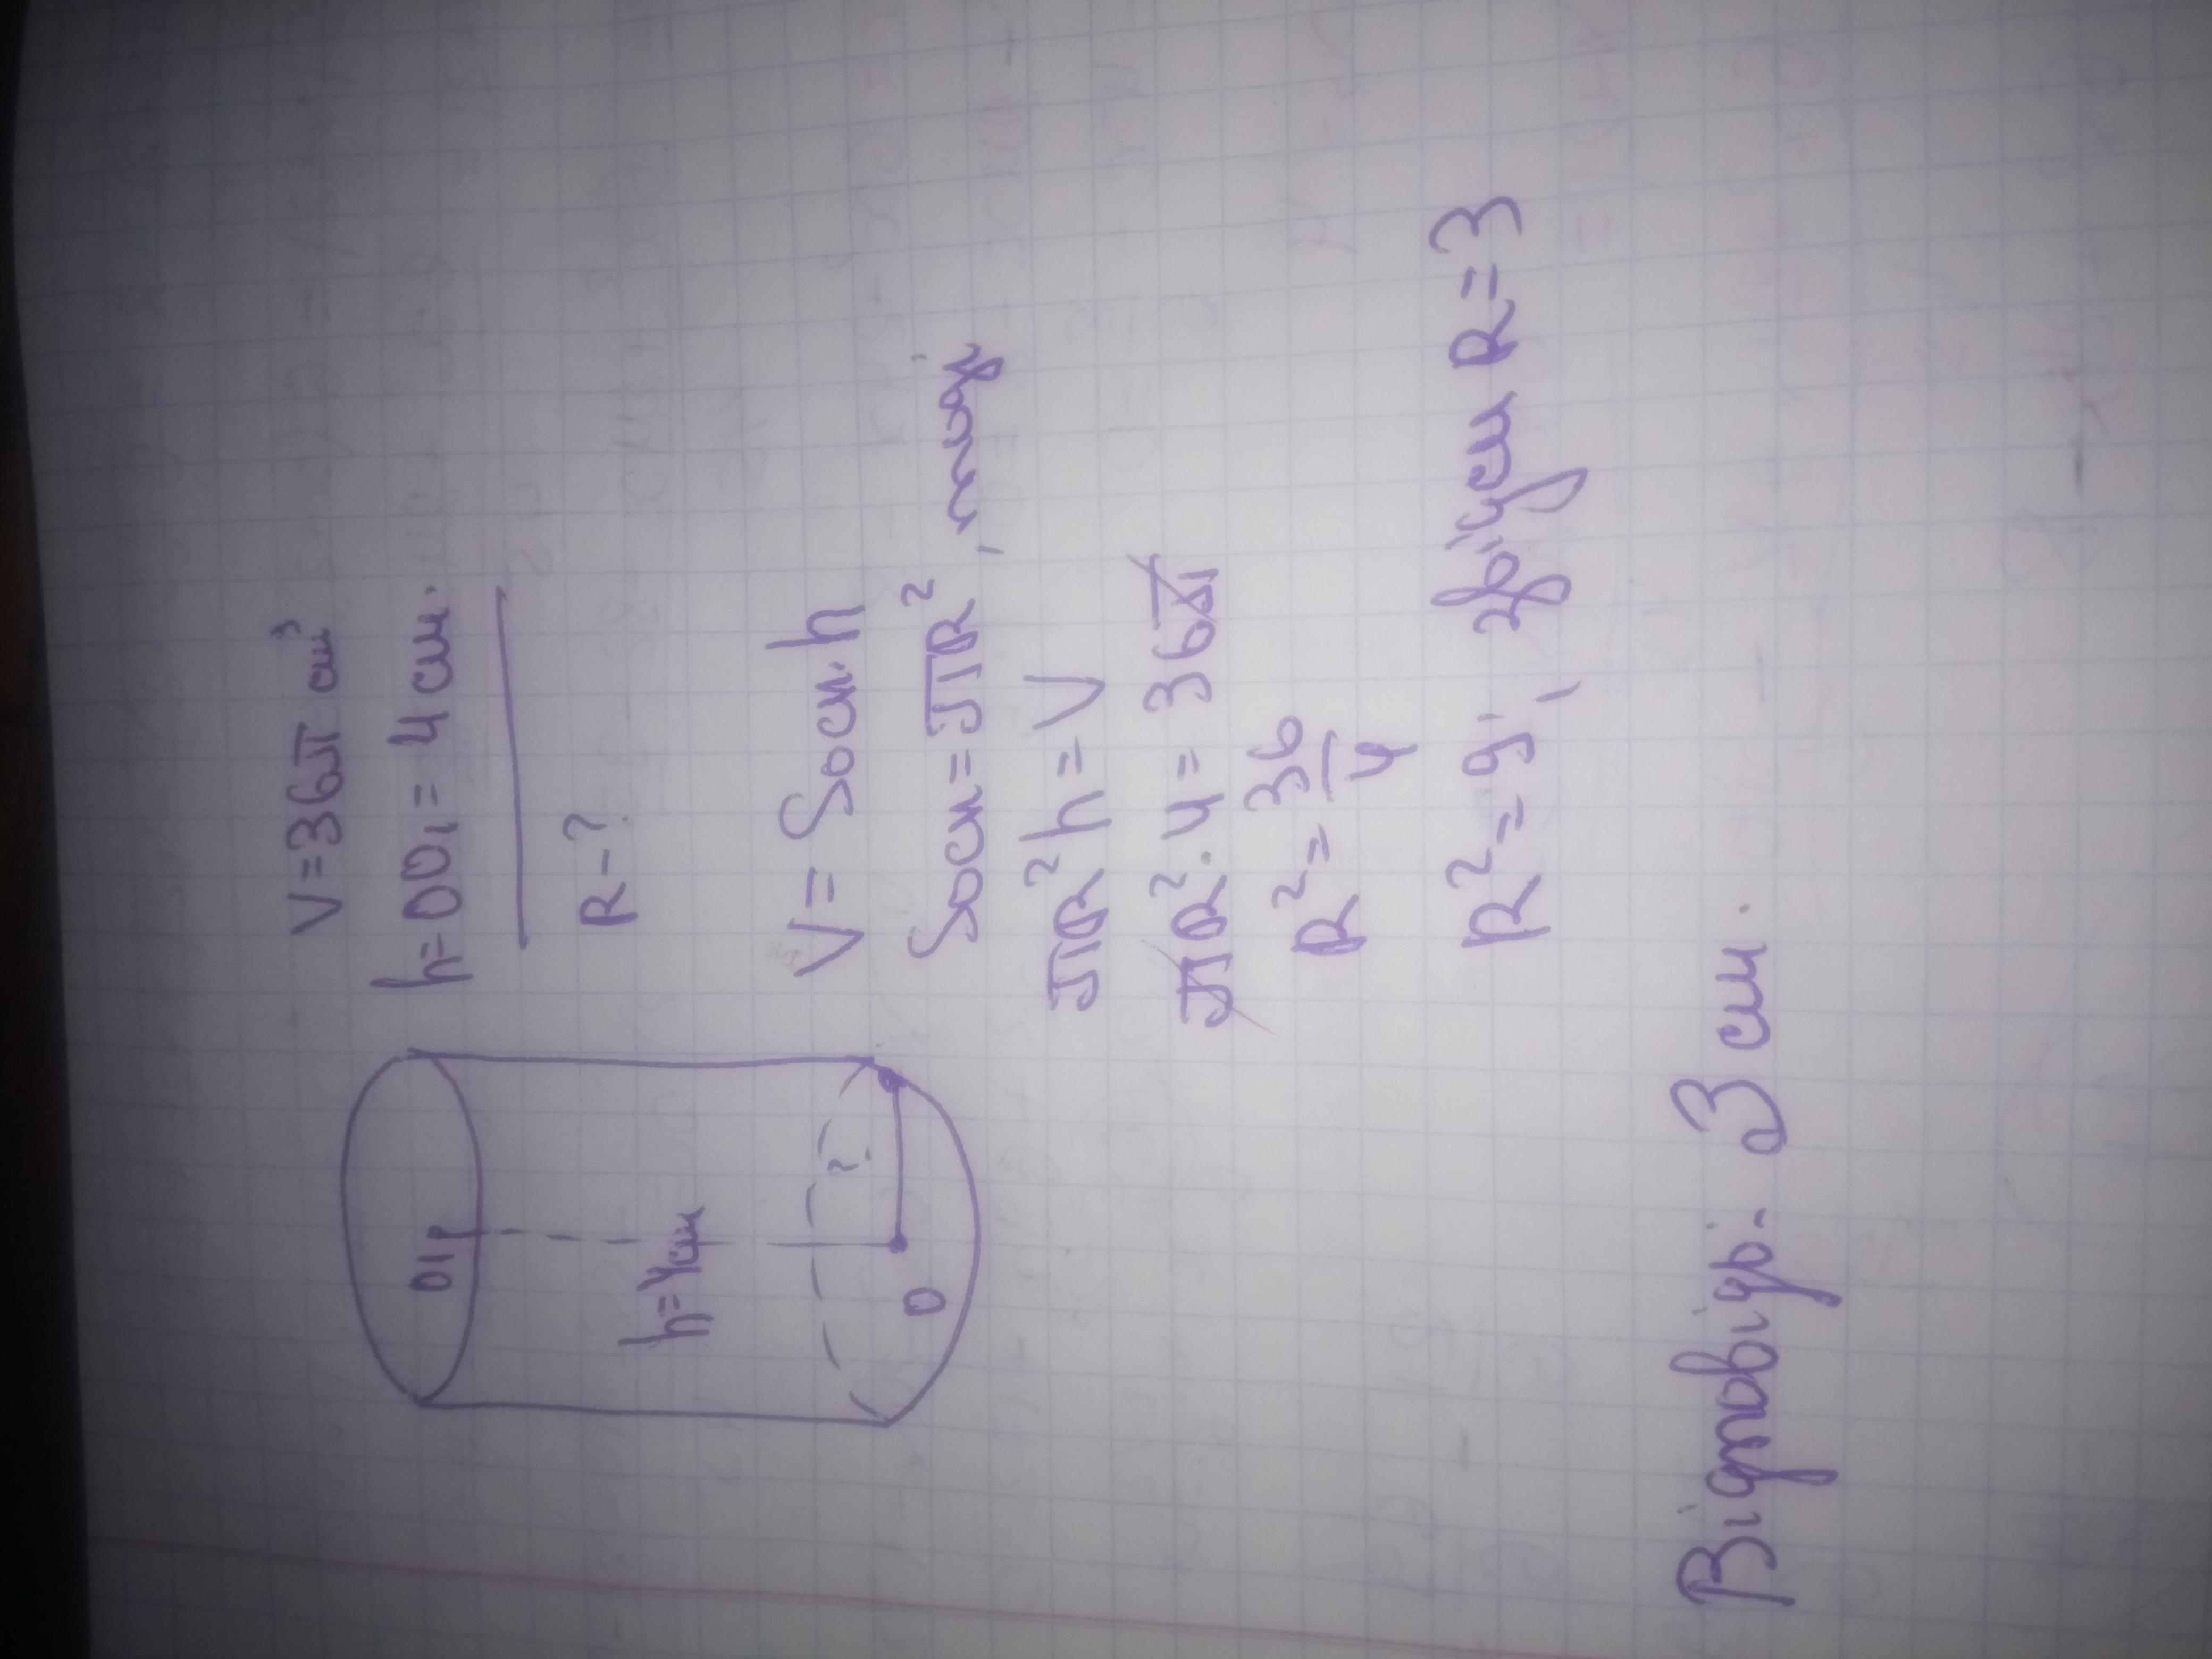 V=36π см³
h=OO₁=4см.
R-?
O₁
h=4см
?
O
V=Sосн.h
Sосн=πR², тоді
πR²h=V
πR²·4=36π
R²=36/4
R²=9; звідси R=3
Відповідь: 3 см.